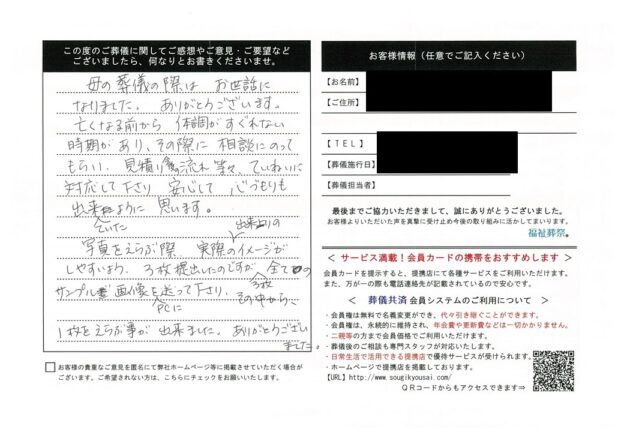 この度のご葬儀に関してご感想やご意見・ご要望など
ございましたら、何なりとお書きくださいませ。
母の葬儀の際は お世話に
なりました。ありがとうございます。
亡くなる前から 体調がすぐれない
時期があり、その際に 相談にのって
もらい、見積り の流れ 等々、ていねいに
対応して下さり 安心して 心づもりも
出来 ように 思います。
ていた
出来上りの
写真をえらぶ際、実際のイメージが
しやすいよう、3枚提出したのですが 全て の
3枚
サンプル 画像を送って下さり、その中から、
PCに
1枚をえらぶ事が 出来ました。ありがとうござい
ました。
お客様の貴重なご意見を匿名にて弊社ホームページ等に掲載させていただく場合が
ございます。ご希望されない方は、こちらにチェックをお願いいたします。
お客様情報（任意でご記入ください）
【お名前】
【ご住所】
【ＴＥＬ】
【葬儀施行日】
【葬儀担当者】
最後までご協力いただきまして、誠にありがとうございました。
お客様よりいただいた声を真摯に受け止め今後の取り組みに活かしてまいります。
福祉葬祭。
＜ サービス満載！会員カードの携帯をおすすめします ＞
会員カードを提示すると、提携店にて各種サービスをご利用いただけます。
また、万が一の際も電話連絡先が記載されているので安心です。
＜ 葬儀共済 会員システムのご利用について ＞
・会員権は無料で名義変更ができ、代々引き継ぐことができます。
・会員権は、永続的に維持され、年会費や更新費などは一切かかりません。
・二親等の方まで会員価格でご利用いただけます。
・葬儀後のご相談も専門スタッフが対応いたします。
・日常生活で活用できる提携店で優待サービスが受けられます。
・ホームページで提携店を掲載しております。
【URL】http://www.sougikyousai.com/
ＱＲコードからもアクセスできます⇒